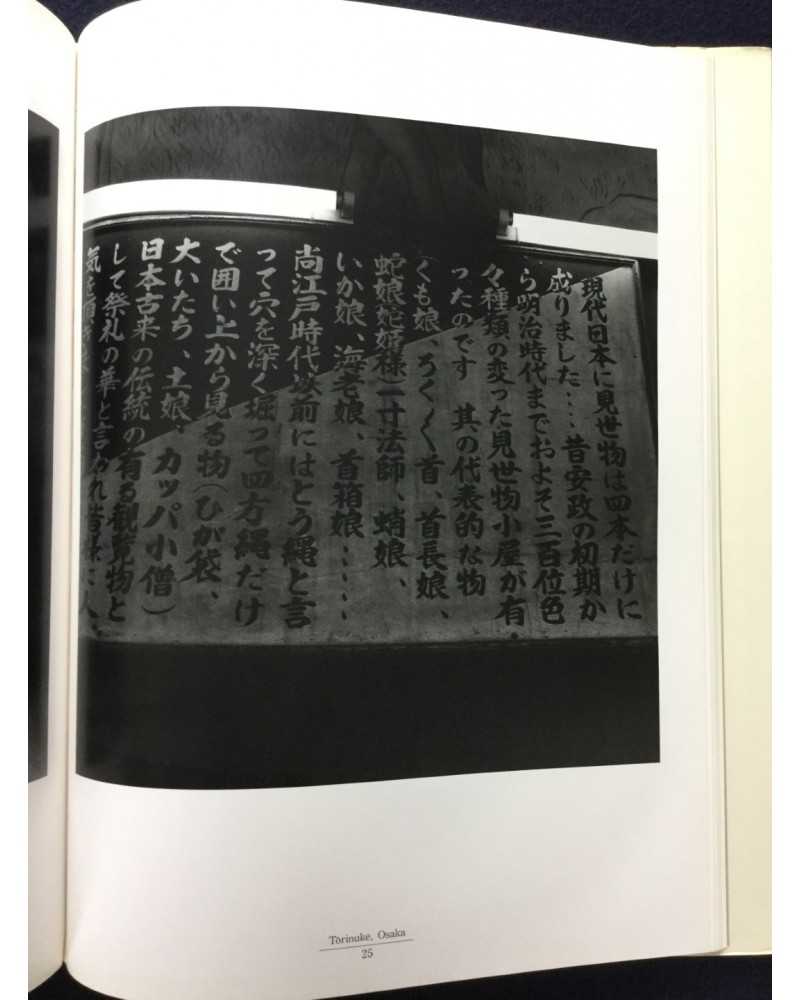 現代日本に見世物は四本だけに
成りました‥‥昔安政の初期か
ら明治時代までおよそ三百位色
々種類の変った見世物小屋が有
ったのです 其の代表的な物
(くも娘、ろく〱首、首長娘、
蛇娘蛇姫様)一寸法師、蛸娘、
いか娘、海老娘、首箱娘‥‥‥
尚江戸時代以前にはとう縄と言
って穴を深く堀って四方縄だけ
で囲い上から見る物(ひが袋、
大いたち、土娘、カッパ小僧)
日本古来の伝統の有る観覧物と
して祭礼の華と言われ皆様に人
気を
Tōrinuke, Osaka
25